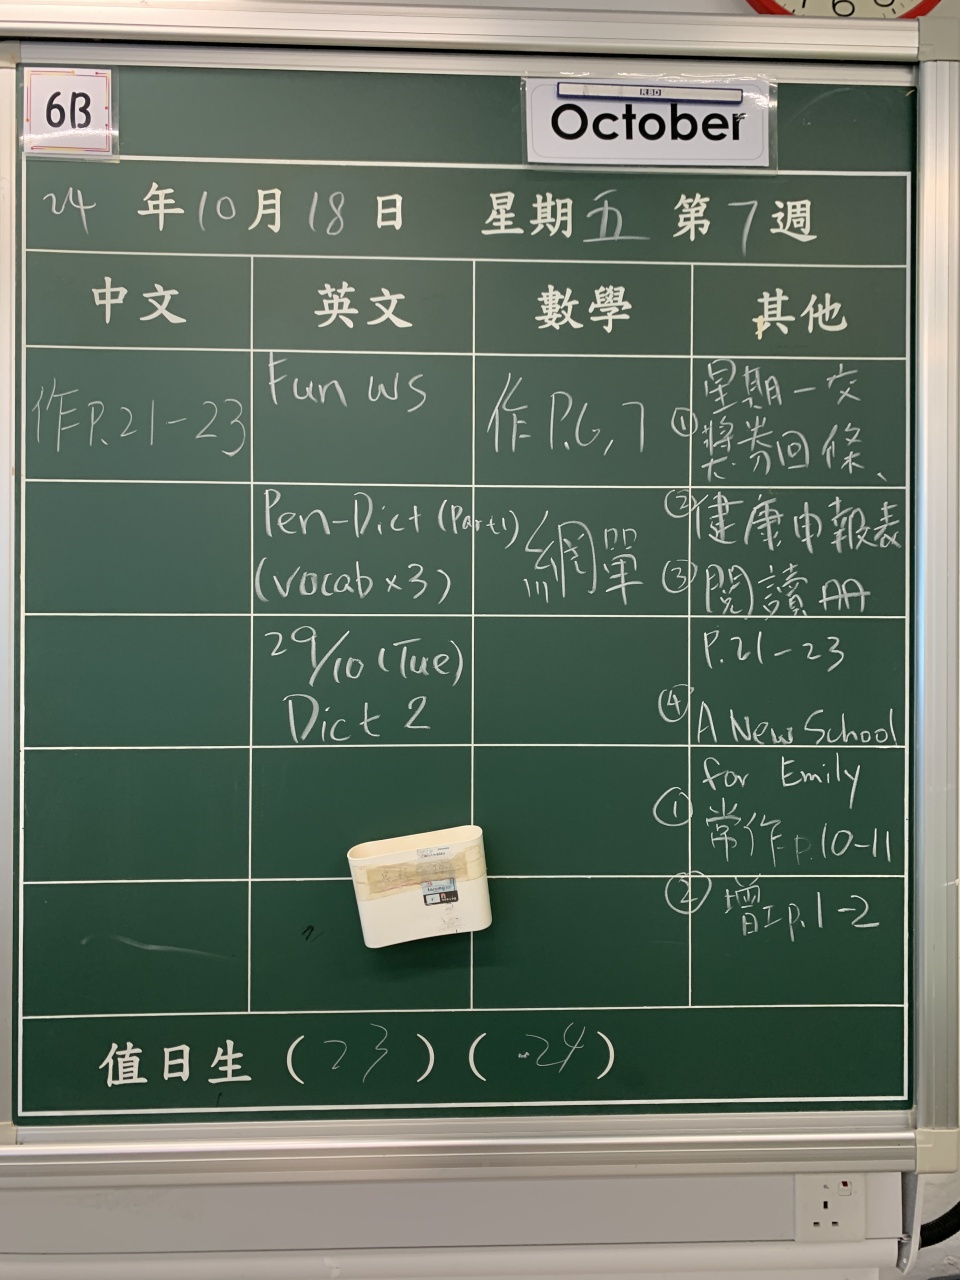 6B
RBD
October
24 年 10 月 18 日 星期 五 第 7 週
中文 英文 數學 其他
作P.21-23
Fun WS
Pen-Dict (Part 1)
(vocab x 3)
29/10 (Tue)
Dict 2
作 P.6, 7
網單
星期一交
① 獎券回條、
② 健康申報表
③ 閱讀
P.21-23
④ A New School
for Emily
① 常作p.10-11
② 增工p.1-2
值日生 (23) (24)